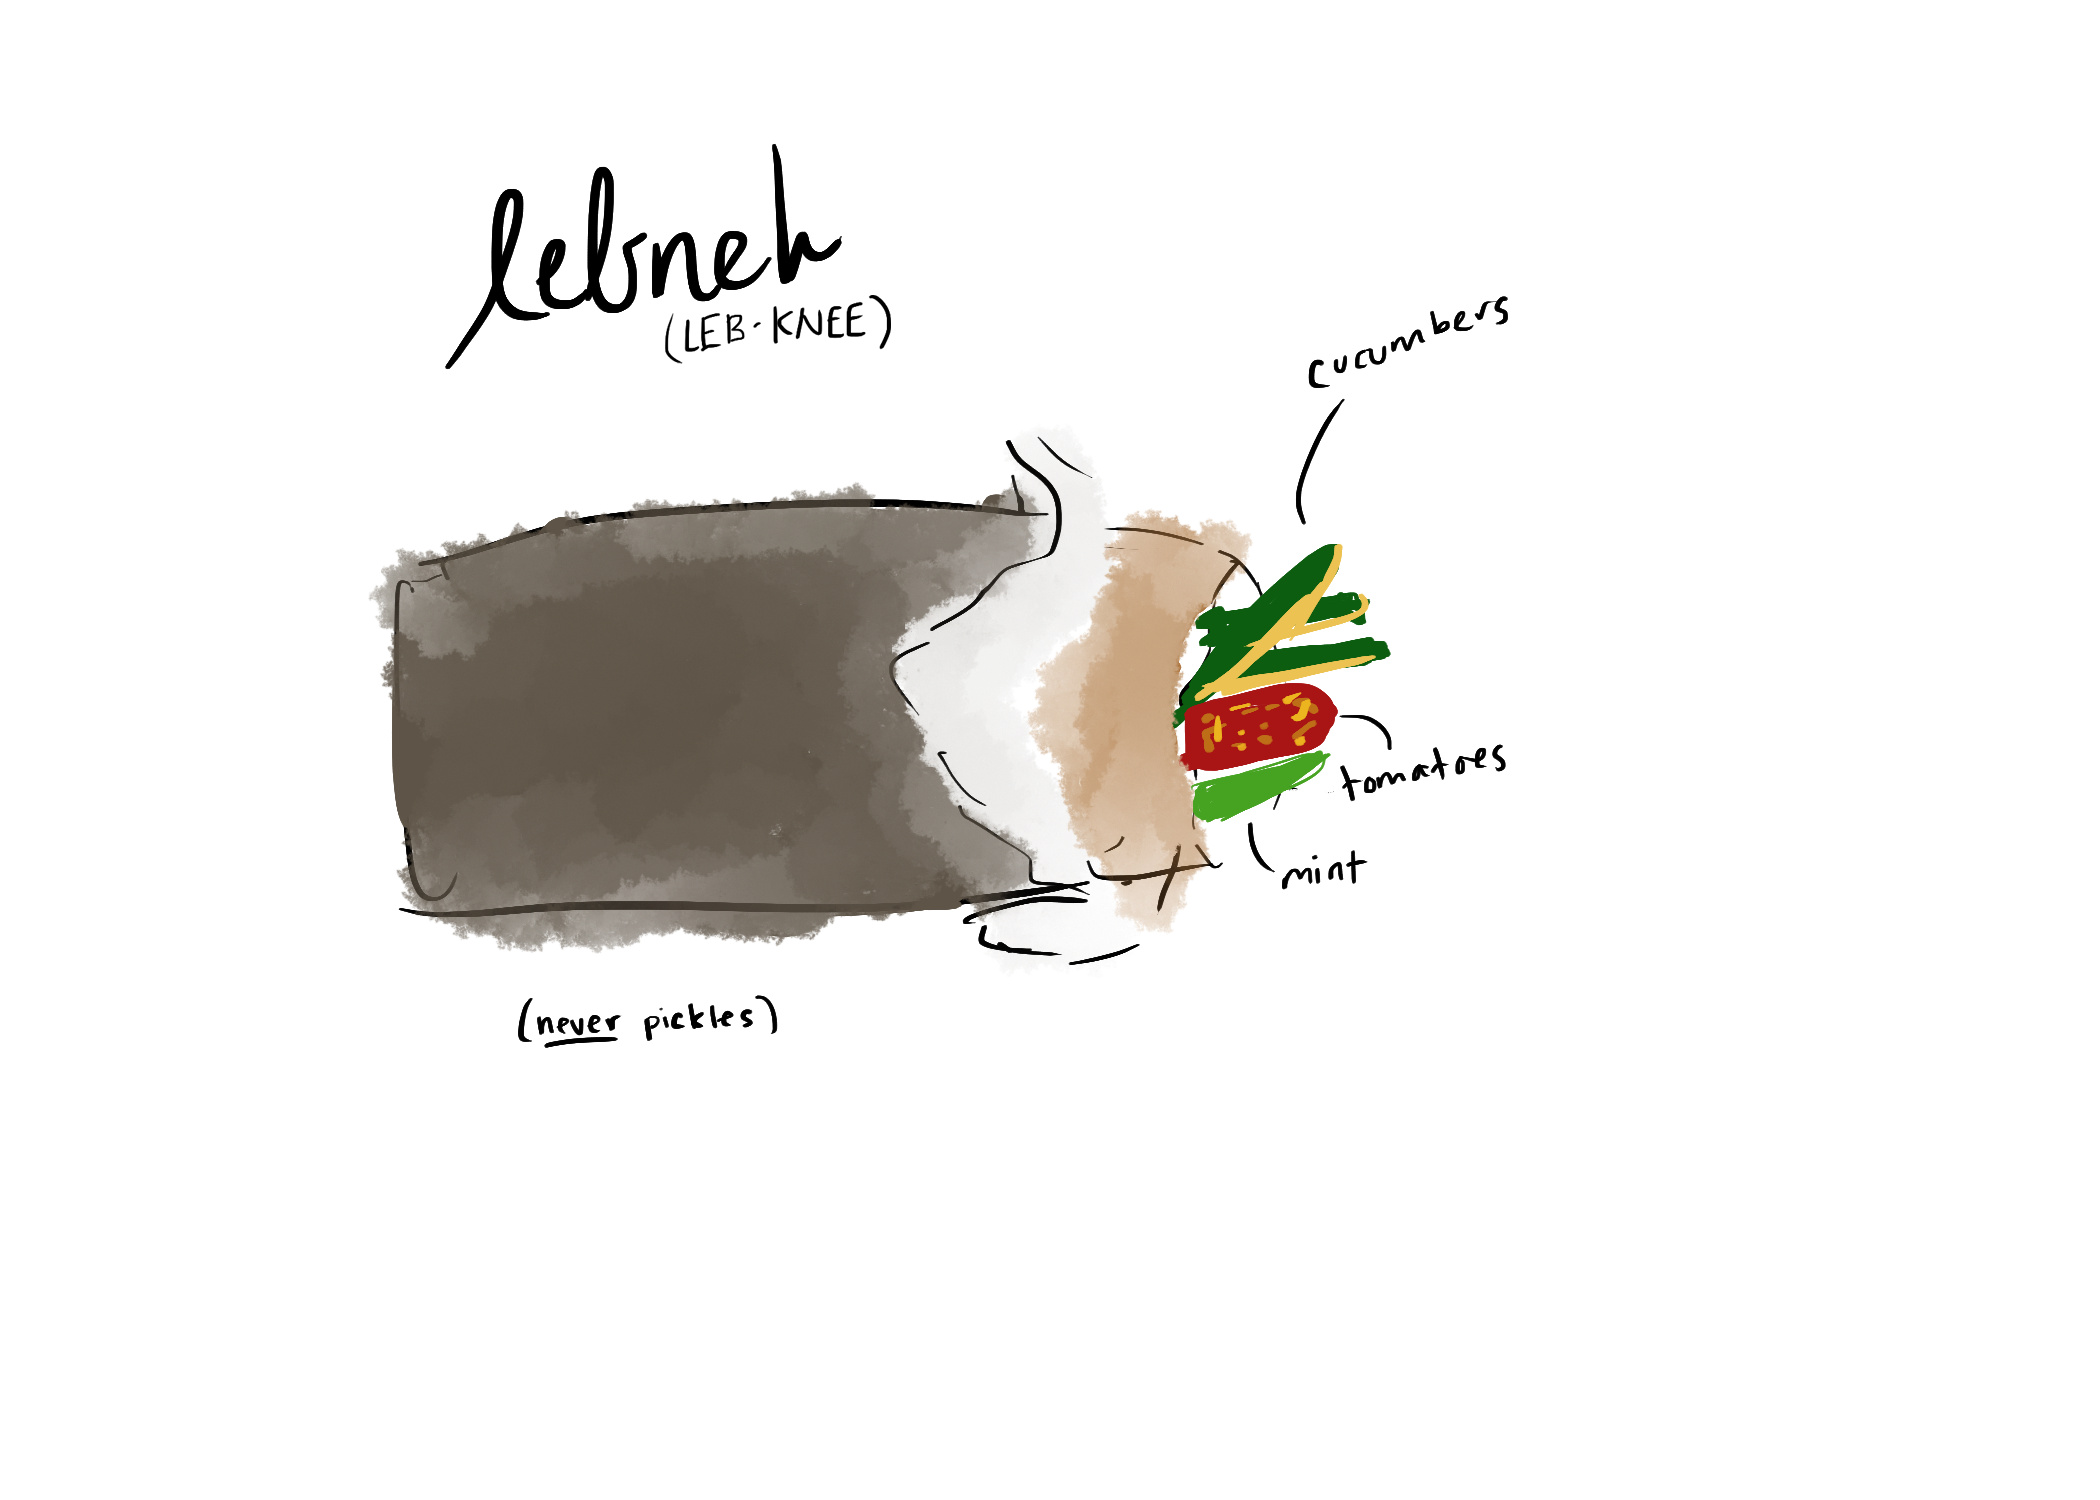 lebneh
(LEB-KNEE)
cucumbers
tomatoes
mint
(never pickles)